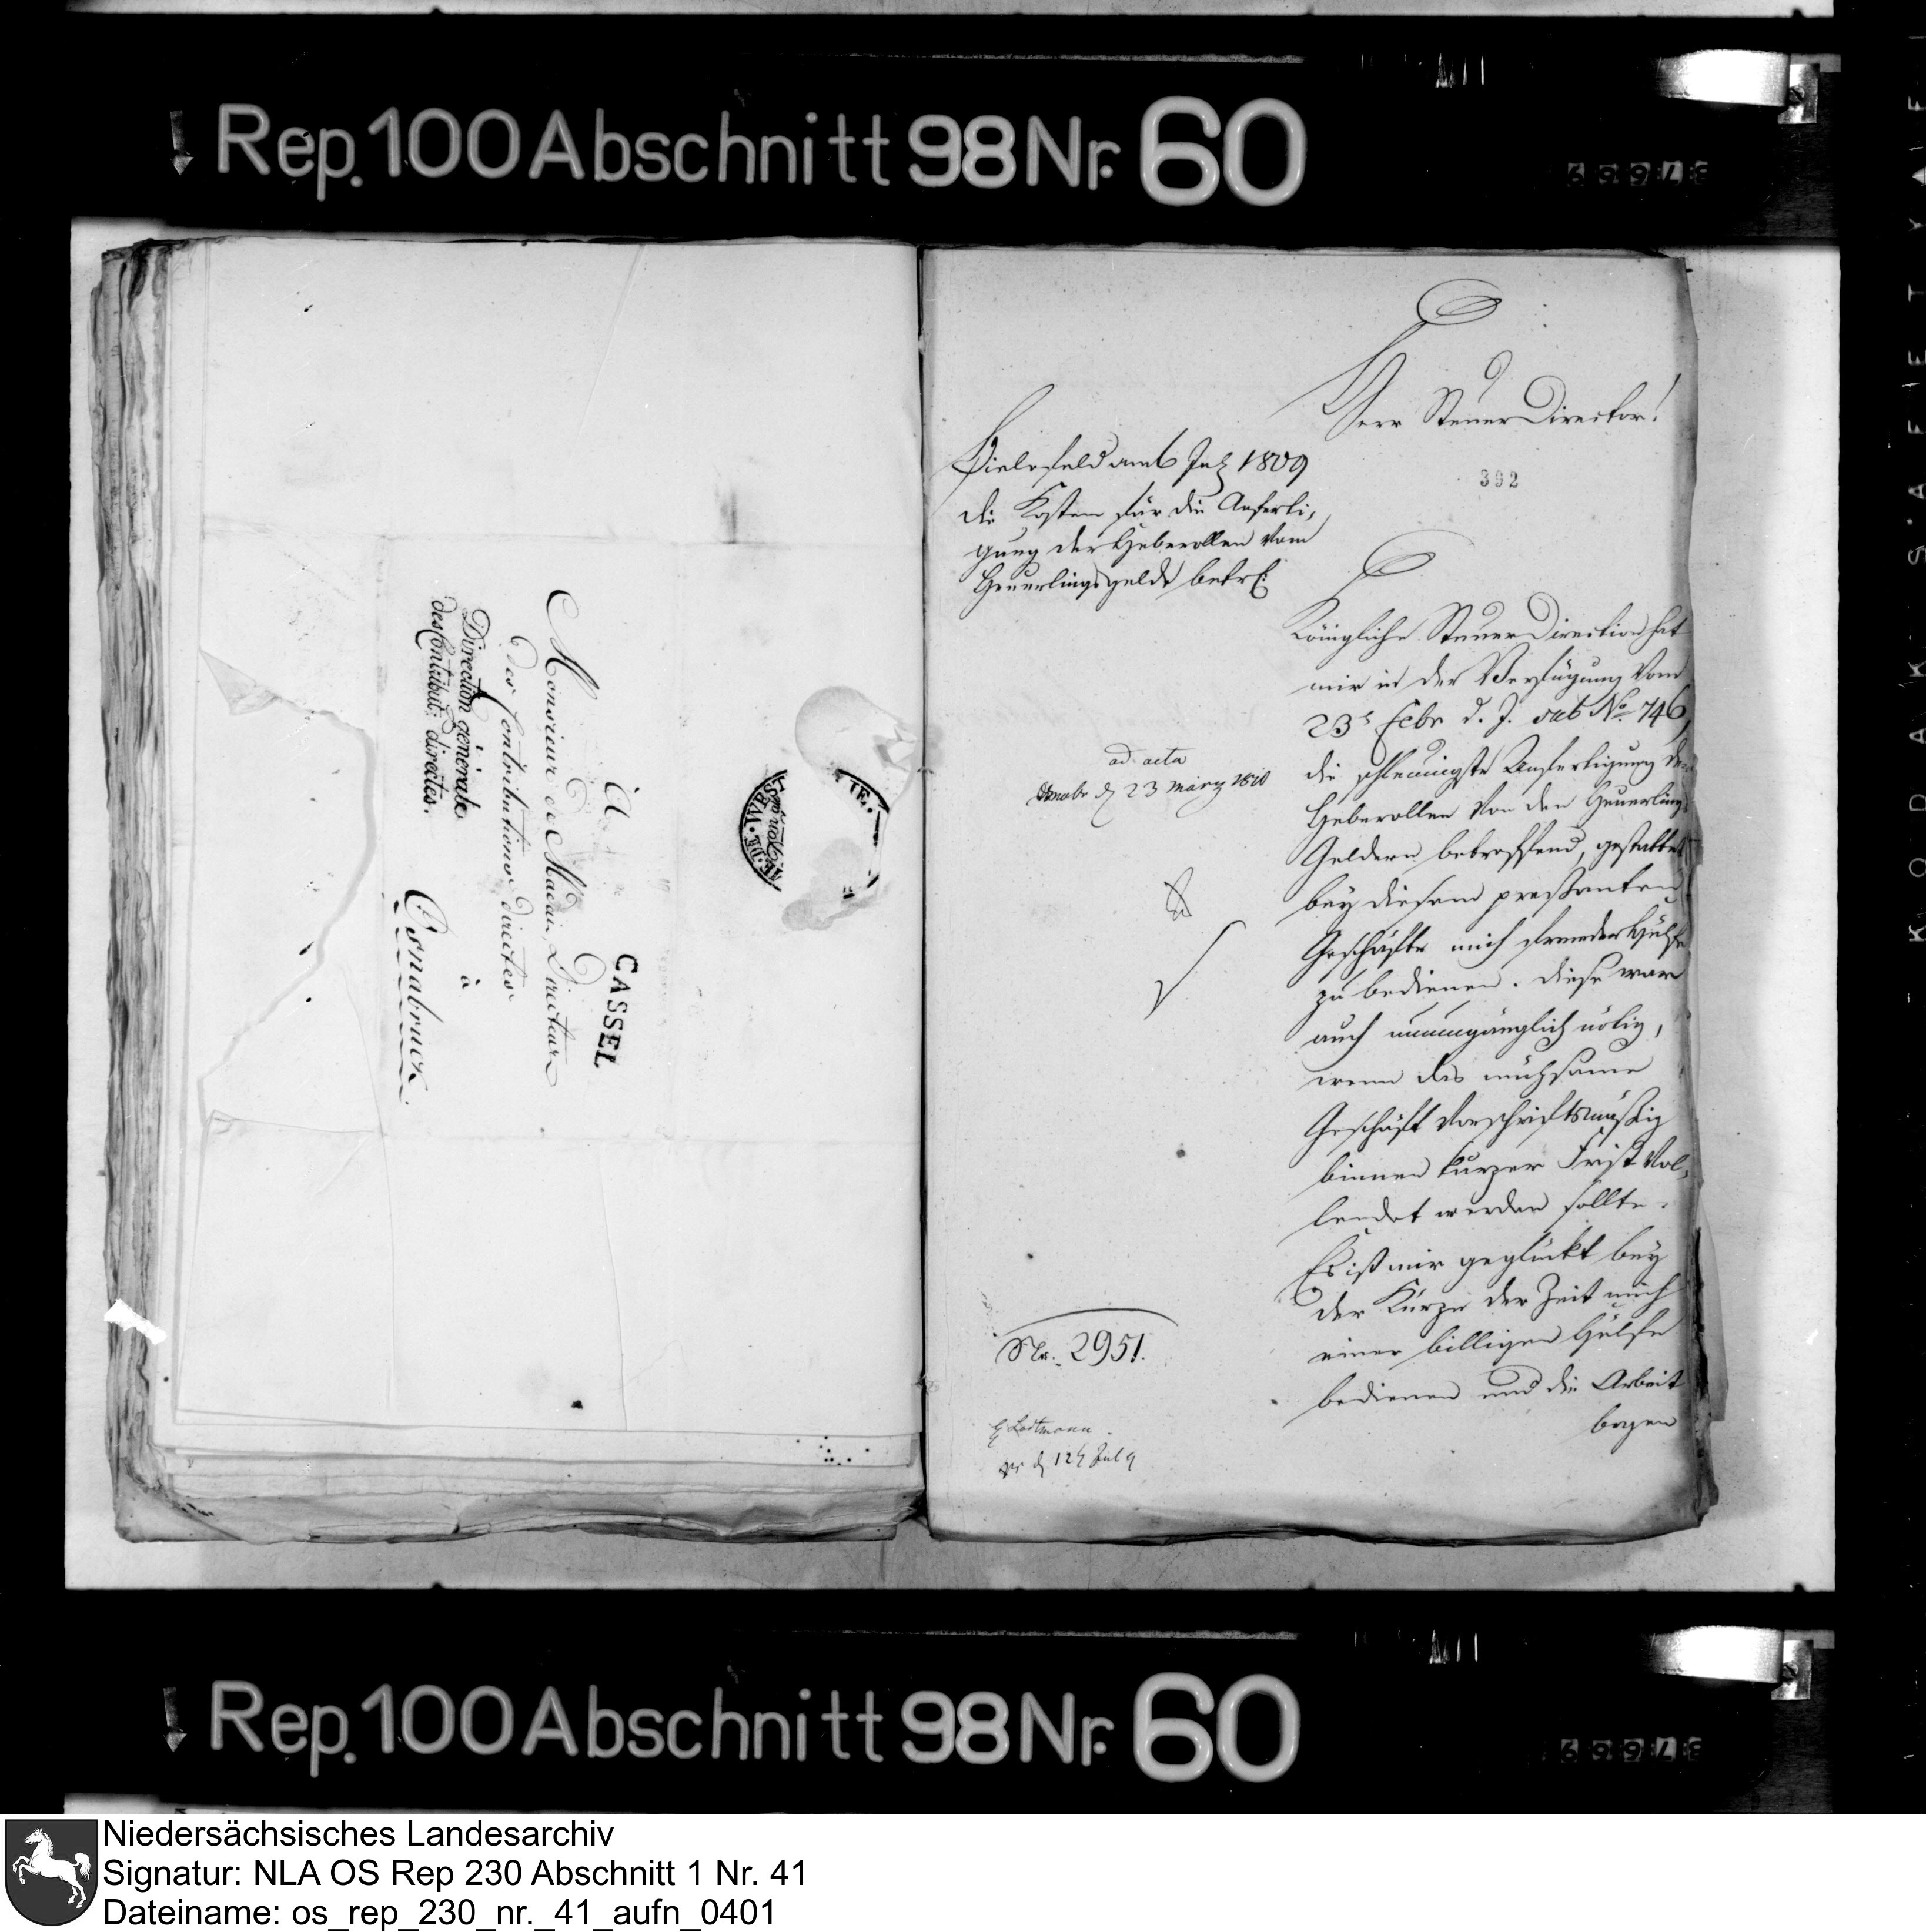 Rep. 100 Abschnitt 98 Nr. 60
37669
À
CASSEL
Monsieur de Macai, Directeur
des Contributions directes
Direction générale
des Contribut: directes.
à
Osnabruck
Herr Steuer Director!
Bielefeld am 6 July 1809
392
die Kosten für die Anferti,
gung der Heberollen vom
Heuerlingsgelde betrf:
Königliche Steuer Direction hat
mir in der Verfügung vom
23t Febr d. J. sub No 746,
die schleunigste Anfertigung der
Heberollen von den Heuerlings
Geldern betreffend, gestattet
bey diesem pressanten
Geschäfte mich fremder Hülfe
zu bedienen. Diese war
auch unumgänglich nötig,
wenn das mühsame
Geschäft vorschriftsmäßig
binnen kurzer Frist vol,
lendet werden sollte.
Es ist mir geglückt bey
der Kürze der Zeit mich
einer billigen Hülfe
bedienen und die Arbeit
bogen
ad acta
Osnabr d 23 März 1810
Nr. 2951.
H Lodtmann
pr d 12t Jul 9
Rep. 100 Abschnitt 98 Nr. 60
37669
Niedersächsisches Landesarchiv
Signatur: NLA OS Rep 230 Abschnitt 1 Nr. 41
Dateiname: os_rep_230_nr._41_aufn_0401